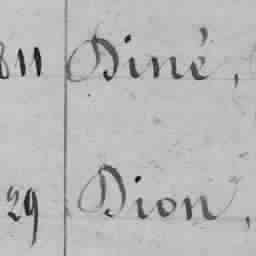 811 Diné,
29 Dion,